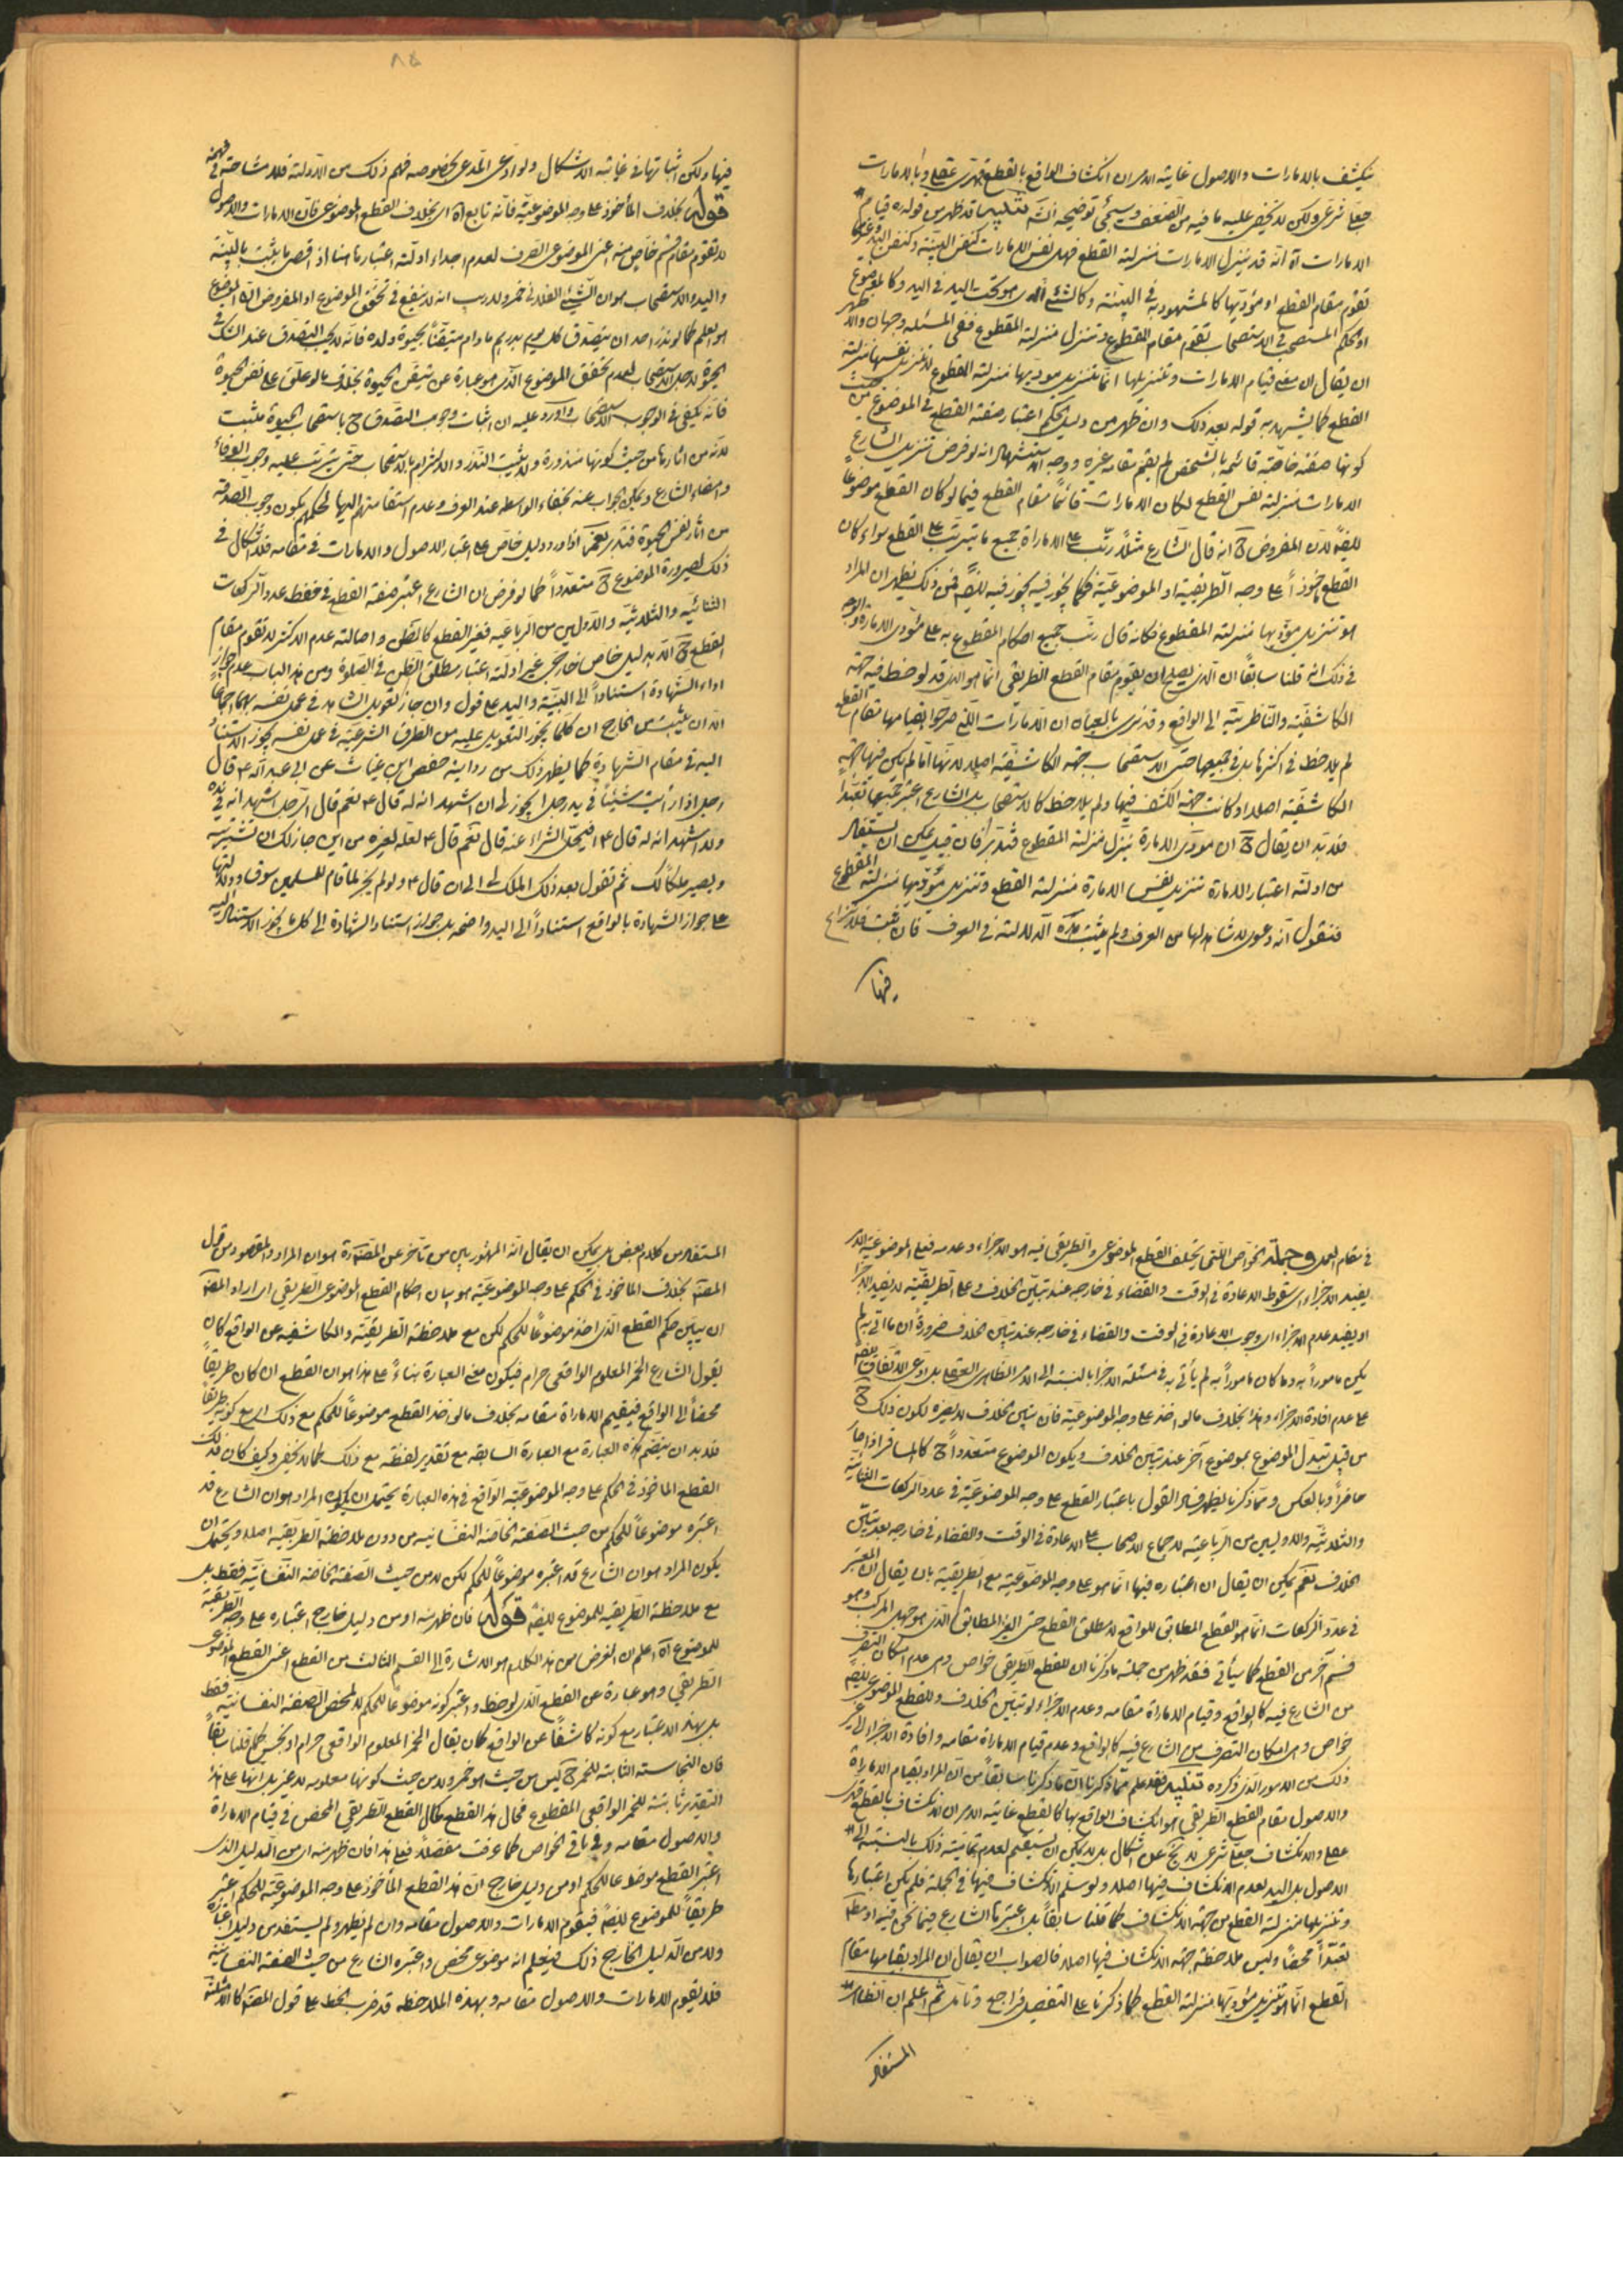 ينكشف بالامارات والاصول غاية الامر ان انكشاف الواقع بالقطع قهرى عقلى وبالامارات
جعلى شرعى ولكن لا يخفى عليه ما فيه من الضعف وسيجئ توضيحه انشه تنبيه قد ظهر من قوله قيام
الامارات اه انه قد ينزل الامارات منزلة القطع فهل نفس الامارات كنفس البينة وكنفس اليد وغيرها
تقوم مقام القطع او مؤديها كالمشهود به فى البينة وكالشئ الذى هو تحت اليد فى اليد وكالموضوع
او الحكم المستصحب فى الاستصحاب تقوم مقام المقطوع وتنزل منزلة المقطوع ففى المسئلة وجهان والاظهر
ان يقال ان معنى قيام الامارات وتنزيلها انما تنزيل مؤديها منزلة المقطوع لا تنزيل نفسها منزلة
القطع كما يشهد به قوله بعد ذلك وان ظهر من دليل الحكم اعتبار صفة القطع فى الموضوع من حيث
كونها صفة خاصة قائمة بالشخص لم يقم مقامه غيره ووجه الاستشهاد انه لو فرض تنزيل الشارع
الامارات منزلة نفس القطع لكان الامارات قائما مقام القطع فيما لو كان القطع موضوعاً
ايضا لان المفروض ح انه قال الشارع مثلاً رتّب على الامارة جميع ما يترتب على القطع سواء كان
القطع ماخوذاً على وجه الطريقية او الموضوعية فكما يجوز فيه يجوز فيه ايضا فمن ذلك يظهر ان المراد
هو تنزيل مؤديها منزلة المقطوع فكانه قال رتب جميع احكام المقطوع به على مؤدى الامارة والوجه
فى ذلك انه قلنا سابقاً ان الذى يصلح ان يقوم مقام القطع الطريقى انما هو الذى قد لوحظ فيه جهة
الكاشفية والناظرية الى الواقع وقد نرى بالعيان ان الامارات التى صرحوا بقيامها مقام القطع
لم يلاحظ فى اكثرها بل فى جميعها حتى الاستصحاب جهة الكاشفية اصلا لانها اما لم يكن فيها جهة
الكاشفية اصلا او كانت جهة الكشف فيها ولم يلاحظ كالاستصحاب بل الشارع اعتبر جميعها تعبداً
فلابد ان يقال ح ان مؤدى الامارة ينزل منزلة المقطوع فتدبر فان قيل يمكن ان يستفاد
من ادلة اعتبار الامارة تنزيل نفس الامارة منزلة القطع وتنزيل مؤديها منزلة المقطوع
فنقول انه دعوى لا شاهد لها من العرف ولم يثبت هذه الدلالة فى العرف فان ثبت فلا نزاع
فيها
٨٥
فيها ولكن اثباتها فى غاية الاشكال ولو ادعى المدعى بخصوصه فهم ذلك من الادلة فلا مشاحة فى فهمه
قوله بخلاف المأخوذ على وجه الموضوعية فانه تابع اه اى بخلاف القطع الموضوعى فان الامارات والاصول
لا تقوم مقام قسم خاص منه اعنى الموضوعى الصرف لعدم اجداء ادلة اعتبارها هنا اذ اقصى ما يثبت بالبينة
واليد والاستصحاب هو ان الشئ الفلانى خمر ولا ريب انه لا ينفع فى تحقق الموضوع اذ المفروض ان الموضوع
هو العلم كما لو نذر احد ان يتصدق كل يوم بدرهم ما دام متيقناً بحيوة ولده فانه لا يجب التصدق عند الشك فى
الحيوة لاجل استصحاب لعدم تحقق الموضوع الذى هو عبارة عن تيقن الحيوة بخلاف ما لو علق على نفس الحيوة
فانه يكفى فى الوجوب الاستصحاب واورد عليه ان اثبات وجوب التصدق ح باستصحاب الحيوة مثبت
لانه من اثارها من حيث كونها منذورة ولا يثبت النذر والالتزام بالاستصحاب حتى يترتب عليه وجوب الوفاء
وامضاء الشارع ويمكن الجواب عنه بخفاء الواسطه عند العرف وعدم استقامتهم اليها لحكمهم بكون وجوب الصدقة
من اثار نفس الحيوة فتدبر نعم اذا ورد دليل خاص على اعتبار الاصول والامارات فى مقامه فلا اشكال فى
ذلك لصيرورة الموضوع ح متعدداً كما لو فرض ان الشارع اعتبر صفة القطع فى حفظ عدد الركعات
الثنائية والثلاثية والاوليين من الرباعية فغير القطع كالظن واصالة عدم الاكثر لا تقوم مقام
القطع ح الا بدليل خاص خارجى غير ادلة اعتبار مطلق الظن فى الصلوة ومن هذا الباب عدم جواز
اداء الشهادة استناداً الى البينة واليد على قول وان جاز تعويل الشاهد فى عمل نفسه بهما اجماعاً
الا ان يثبت من الخارج ان كلما يجوز التعويل عليه من الطرق الشرعية فى عمل نفسه يجوز الاستناد
اليه فى مقام الشهادة كما يظهر ذلك من رواية حفص ابن غياث عن ابى عبد الله ع قال
رجل اذا رأيت شيئاً فى يد رجل ايجوز لى ان اشهد انه له قال ع نعم قال الرجل اشهد انه فى يده
ولا اشهد انه له قال ع افيحل الشراء عنه قال نعم قال ع لعله لغيره من اين جاز لك ان تشتريه
ويصير ملكاً لك ثم تقول بعد ذلك الملك لى الى ان قال ع ولو لم يجز لما قام للمسلمين سوق ودلالتها
على جواز الشهادة بالواقع استناداً الى اليد واضحة بل جواز استناد الشهادة الى كل ما يجوز الاستناد اليه
فى مقام العمل وجملة الخواص التى يختلف القطع الموضوعى والطريقى فيه هو الاجزاء وعدمه فعلى الموضوعية
يفيد الاجزاء اى سقوط الاعادة فى الوقت والقضاء فى خارجه عند تبين الخلاف وعلى الطريقية لا يفيد الاجزاء
او يفيد عدم الاجزاء اى وجوب الاعادة فى الوقت والقضاء فى خارجه عند تبين الخلاف ضرورة ان ما اتى به لم
يكن ماموراً به وما كان ماموراً به لم يأتى به فى مسئلة الاجزاء بالنسبة الى الامر الظاهرى العقلى بل ادعى الاتفاق
على عدم افادة الاجزاء وهذا بخلاف ما لو اخذ على وجه الموضوعية فان تبين الخلاف لا يضره لكون ذلك ح
من قبيل تبدل الموضوع بموضوع آخر عند تبين الخلاف ويكون الموضوع متعدداً ح كالمسافر اذا جاء
حاضراً وبالعكس ومما ذكرنا يظهر فساد القول باعتبار القطع على وجه الموضوعية فى عدد الركعات الثنائية
والثلاثية والاوليين من الرباعية لاجماع الاصحاب على الاعادة فى الوقت والقضاء فى خارجه بعد تبين
الخلاف نعم يمكن ان يقال ان اعتباره فيها انما هو على وجه الموضوعية مع الطريقية بان يقال ان المعتبر
فى عدد الركعات انما هو القطع المطابق للواقع لا مطلق القطع حتى الغير المطابق الذى هو جهل المركب وهو
قسم آخر من القطع كما سيأتى فقد ظهر من جملة ما ذكرنا ان للقطع الطريقى خواص وهى عدم امكان التصرف
من الشارع فيه كالواقع وقيام الامارة مقامه وعدم الاجزاء لو تبين الخلاف وللقطع الموضوعى ايضا
خواص وهى امكان التصرف من الشارع فيه كالواقع وعدم قيام الامارة مقامه وافادة الاجزاء الى غير
ذلك من الامور الذى ذكروه تنبيه فقد علم مما ذكرنا ان ما ذكرنا سابقاً من ان المراد بقيام الامارة
والاصول مقام القطع الطريقى هو انكشاف الواقع بها كالقطع غاية الامر ان الانكشاف بالقطع قهرى
عقلى والانكشاف جعلى شرعى لا يخ عن اشكال بل لا يمكن ان يستقيم لعدم تمامية ذلك بالنسبة الى
الاصول بل اليد لعدم الانكشاف فيها اصلا ولو سلم الانكشاف فيها فى الجملة فلم يكن اعتبارها
وتنزيلها منزلة القطع من جهة الانكشاف كما قلنا سابقاً بل اعتبرها الشارع فيما نحن فيه او مط
تعبداً محضاً وليس ملاحظة جهة الانكشاف فيها اصلا فالصواب ان يقال ان المراد بقيامها مقام
القطع انما هو تنزيل مؤديها منزلة القطع كما ذكرنا على التفصيل فراجع وتأمل ثم اعلم ان الظاهر
المستفاد
المستفاد من كلام بعض بل يمكن ان يقال انه المشهور بين من تأخر عن المصنف ره هو ان المراد والمقصود من قول
المصنف بخلاف المأخوذ فى الحكم على وجه الموضوعية هو بيان احكام القطع الموضوعى الطريقى اى اراد المصنف
ان يبين حكم القطع الذى اخذ موضوعاً للحكم لكن مع ملاحظة الطريقية والكاشفيه عن الواقع كان
يقول الشارع الخمر المعلوم الواقعى حرام فيكون معنى العبارة بناءً على هذا هو ان القطع ان كان طريقاً
محضاً الى الواقع فيقيم الامارة مقامه بخلاف ما لو اخذ القطع موضوعاً للحكم مع ذلك اى مع كونه طريقاً
فلابد ان ينضم هذه العبارة مع العبارة السابقه مع تقدير لفظه مع ذلك كما لا يخفى وكيف كان فذلك
القطع الماخوذ فى الحكم على وجه الموضوعية الواقع فى هذه العبارة يحتمل ان يكون المراد هو ان الشارع قد
اعتبره موضوعاً للحكم من حيث الصفة الخاصة النفسانيه من دون ملاحظة الطريقيه اصلا ويحتمل ان
يكون المراد هو ان الشارع قد اعتبره موضوعاً للحكم لكن لا من حيث الصفة الخاصة النفسانية فقط بل
مع ملاحظة الطريقيه للموضوع ايضا قوله فان ظهر منه او من دليل خارج اعتباره على وجه الطريقية
للموضوع اه اعلم ان الغرض من هذا الكلام هو الاشارة الى القسم الثالث من القطع اعنى القطع الموضوعى
الطريقي وهو عبارة عن القطع الذى لوحظ واعتبر كونه موضوعاً للحكم لا لمحض الصفة النفسانية فقط
بل بهذا الاعتبار مع كونه كاشفاً عن الواقع كان يقال الخمر المعلوم الواقعى حرام او نجس كما قلنا سابقاً
فان النجاسة الثابتة للخمر ح ليس من حيث هو خمر ولا من حيث كونها معلومه لا غير بل انها على هذا
التقدير ثابتة للخمر الواقعى المقطوع فحال هذا القطع كحال القطع الطريقي المحض فى قيام الامارة
والاصول مقامه وفى باقى الخواص كما عرفت مفصلاً فعلى هذا فان ظهر منه اى من الدليل الذى
اعتبر القطع موضوعا للحكم او من دليل خارج ان هذا القطع المأخوذ على وجه الموضوعية للحكم اعتبر
طريقاً للموضوع ايضا فيقوم الامارات والاصول مقامه وان لم يظهر ولم يستفد من دليل اعتباره
ولا من الدليل الخارج ذلك فيعلم انه موضوعى محض واعتبره الشارع من حيث الصفة النفسانية
فلا يقوم الامارات والاصول مقامه وبهذه الملاحظه قد ضرب الخط على قول المصنف كالامثلة